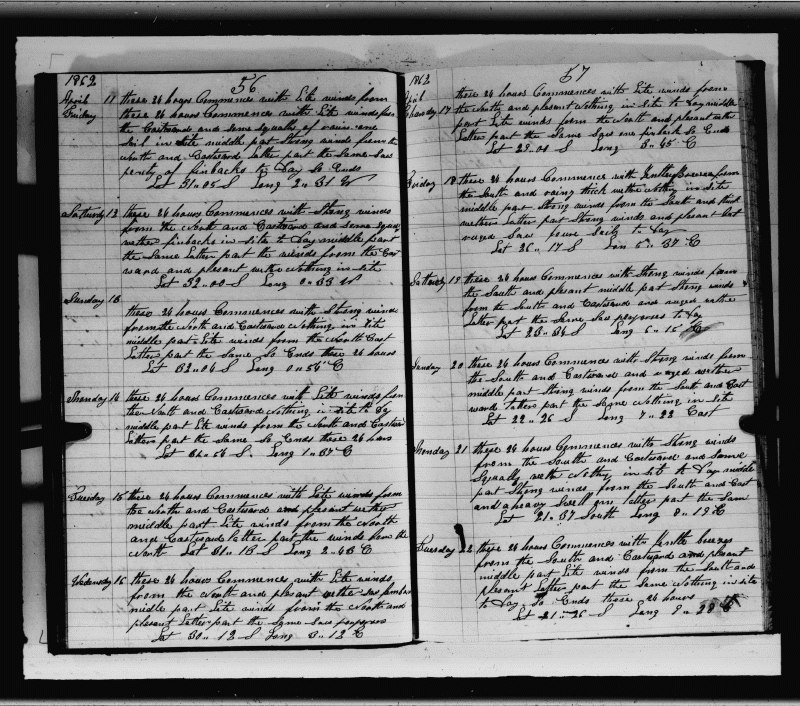 1862
56
April 11 these 24 hours Commences with Lite winds from
Friday these 24 hours Commences with Lite winds from
the Eastward and some squalls of rain one
Sail in site middle part Strong winds from the
North and Eastward Latter part the Same Saw
plenty of finbacks to Day So Ends
Lat 31"05 S Long 2"31 W
Satturdy 12 these 24 hours Commences with Strong winds
from the North and Eastward and some
wether finbacks in site to Day middle part
the Same Latter part the winds from the
ward and plesent wether Nothing in site
Lat 32"00 S Long 0"33 W
Sunday 13
these 24 hours Commences with Strong winds
from the North and Eastward Nothing in site
middle part Lite winds from the North East
Latter part the Same So Ends these 24 hours
Lat 32"04 S Long 0"54 E
Monday 14 these 24 hours Commences with Lite winds from
the North and Eastward Nothing in site to Day
middle part Lite winds from the North and Easterd
Latter part the Same So Ends these 24 hours
Lat S. Long 1"37 E
Tuesday 15 these 24 hours Commences with Lite winds from
the North and Eastward and plesent wether
middle part Lite winds from the North
and Eastward latter part the winds from the
North Lat 31"13 S Long 2"43 E
Wedensday 16 these 24 hours Commences with Lite winds
from the North and plesent wether
midle part Lite winds from the North and
plesent Latter part the Same Saw
Lat 30"12 S Long 3"12 E
1862
57
April these 24 hours Commences with Lite winds from
Thursday 17 the North and plesent Nothing in site to Day middle
part Lite winds from the North and plesent wether
Latter part the Same Saw one finback So Ends
Lat 29"01 S Long 3"45 E
Friday 18 these 24 hours Commences with from
the South and thick wether Nothing in site
middle part Strong winds from the South and thick
wether Latter part Strong winds and plesent but
ruged Saw Sails to Day
Lat 26"17 S Lon 5"37 E
Satturdy 19 these 24 hours Commences with Strong winds from
the South and plesent middle part Strong winds
from the South and Eastward and ruged wether
Latter part the Same Saw to Day
Lat 23"34 S Long 6"15 E
Sunday 20 these 24 hours Commences with Strong winds from
the South and Eastward and ruged wether
middle part Strong winds from the South and East
ward latter part the Same Nothing in site
Lat 22"26 S Long 7"22 East
Monday 21 these 24 hours Commences with Strong winds
from the South and Eastward and Some
Squaly wether Nothing in sit to Day middle
part Strong winds from the South and East
and a heavy Swell on latter part the Same
Lat 21"37 South Long 8"19 E
Tuesday 22 these 24 hours Commences with breezes
from the South and Eastward and plesant
middle part Lite winds from the South and
plesant Latter part the Same Nothing in site
to Day So Ends these 24 hours
Lat 21"26 S Long 9"28 E